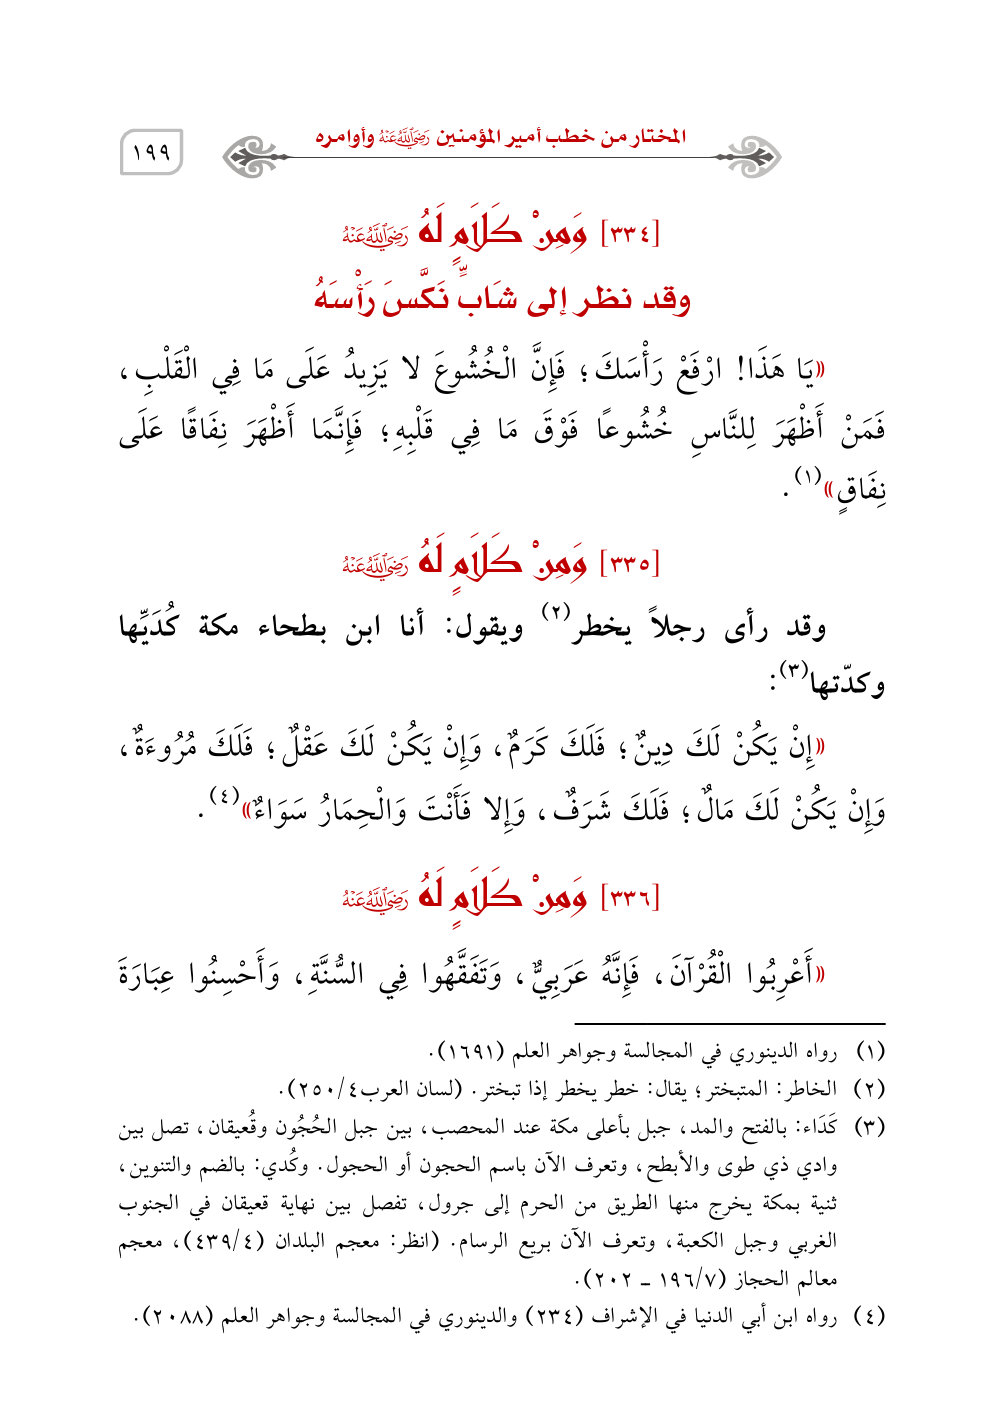 المختار من خطب أمير المؤمنين رَضِيَ اللَّهُ عَنْهُ وأوامره
١٩٩
[٣٣٤] وَمِنْ كَلَامٍ لَهُ رَضِيَ اللَّهُ عَنْهُ
وقد نظر إلى شَابٍّ نَكَّسَ رَأْسَهُ
«يَا هَذَا! ارْفَعْ رَأْسَكَ؛ فَإِنَّ الْخُشُوعَ لا يَزِيدُ عَلَى مَا فِي الْقَلْبِ،
فَمَنْ أَظْهَرَ لِلنَّاسِ خُشُوعًا فَوْقَ مَا فِي قَلْبِهِ؛ فَإِنَّمَا أَظْهَرَ نِفَاقًا عَلَى
نِفَاقٍ»(١).
[٣٣٥] وَمِنْ كَلَامٍ لَهُ رَضِيَ اللَّهُ عَنْهُ
وقد رأى رجلاً يخطر(٢) ويقول: أنا ابن بطحاء مكة كُدَيِّها
وكدّتها(٣):
«إِنْ يَكُنْ لَكَ دِينٌ؛ فَلَكَ كَرَمٌ، وَإِنْ يَكُنْ لَكَ عَقْلٌ؛ فَلَكَ مُرُوءَةٌ،
وَإِنْ يَكُنْ لَكَ مَالٌ؛ فَلَكَ شَرَفٌ، وَإِلا فَأَنْتَ وَالْحِمَارُ سَوَاءٌ»(٤).
[٣٣٦] وَمِنْ كَلَامٍ لَهُ رَضِيَ اللَّهُ عَنْهُ
«أَعْرِبُوا الْقُرْآنَ، فَإِنَّهُ عَرَبِيٌّ، وَتَفَقَّهُوا فِي السُّنَّةِ، وَأَحْسِنُوا عِبَارَةَ
(١) رواه الدينوري في المجالسة وجواهر العلم (١٦٩١).
(٢) الخاطر: المتبختر؛ يقال: خطر يخطر إذا تبختر. (لسان العرب٢٥٠/٤).
(٣) كَدَاء: بالفتح والمد، جبل بأعلى مكة عند المحصب، بين جبل الحُجُون وقُعيقان، تصل بين
وادي ذي طوى والأبطح، وتعرف الآن باسم الحجون أو الحجول. وكُدي: بالضم والتنوين،
ثنية بمكة يخرج منها الطريق من الحرم إلى جرول، تفصل بين نهاية قعيقان في الجنوب
الغربي وجبل الكعبة، وتعرف الآن بريع الرسام. (انظر: معجم البلدان (٤٣٩/٤)، معجم
معالم الحجاز (١٩٦/٧ ـ ٢٠٢).
(٤) رواه ابن أبي الدنيا في الإشراف (٢٣٤) والدينوري في المجالسة وجواهر العلم (٢٠٨٨).